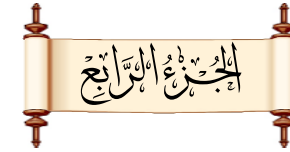 الجُزْءُ الرَّابِعُ